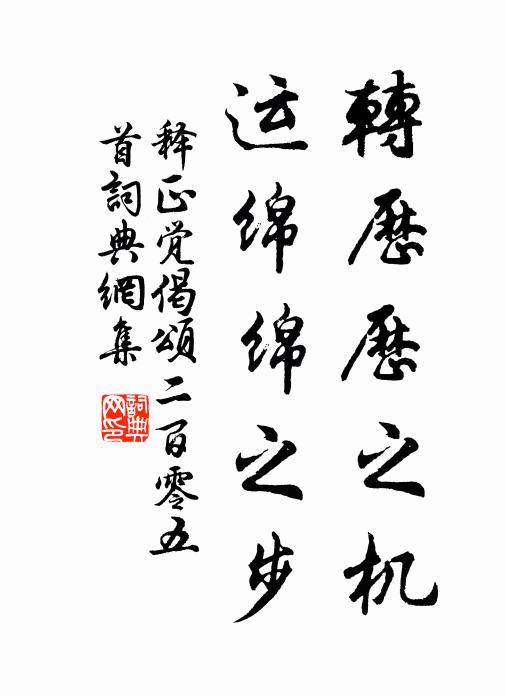 轉歷歷之机
运绵绵之步
释正觉偈頌二百零五
首詞典網集
詞典
网印